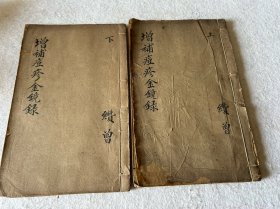 上
增補痘疹金鏡錄
續曾
下
增補痘疹金鏡錄
續曾